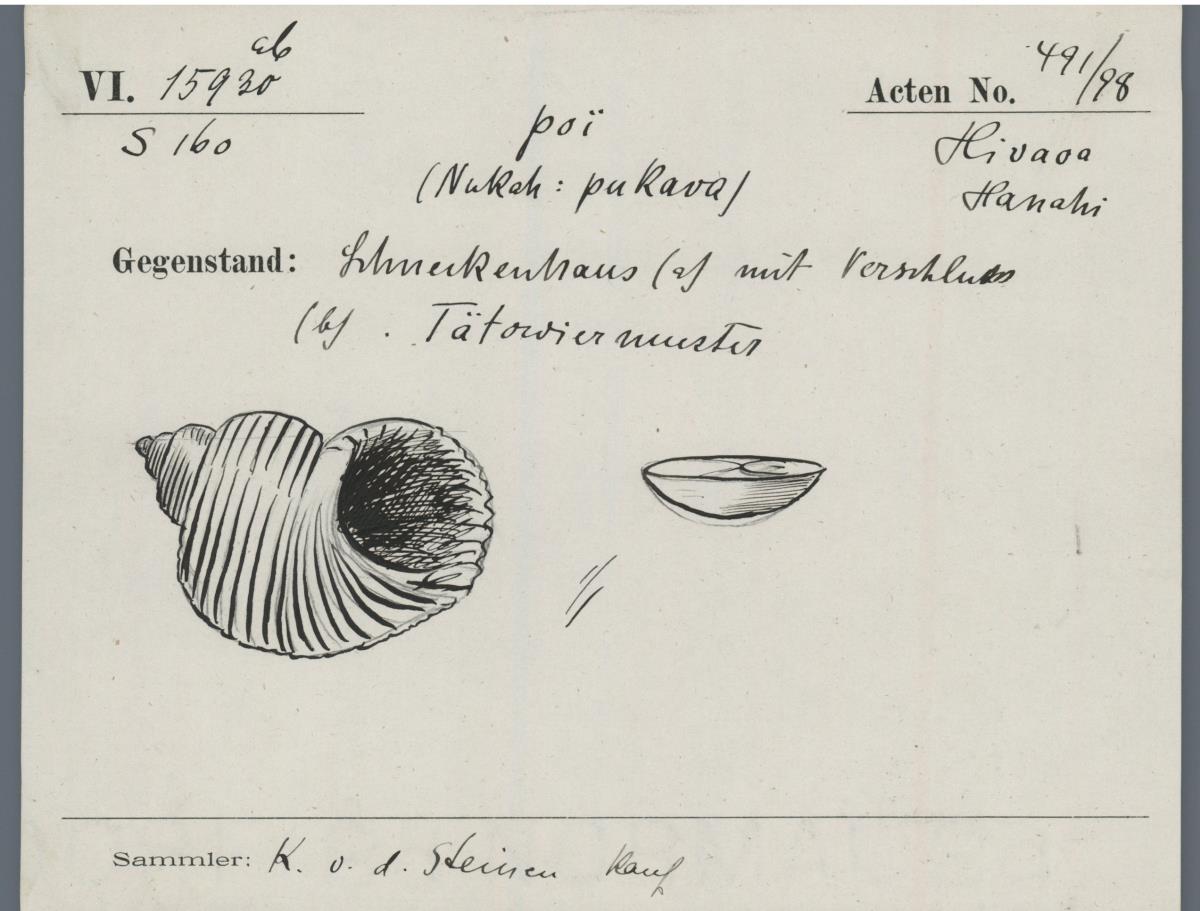 VI. 15930 ab
Acten No. 491/98
S 160
poï
Hivaoa
(Nukah: pukava)
Hanahi
Gegenstand: Schneckenhaus (a) mit Verschluss
(b) . Tätowiermuster
1/1
Sammler: K. v. d. Steinen Kauf